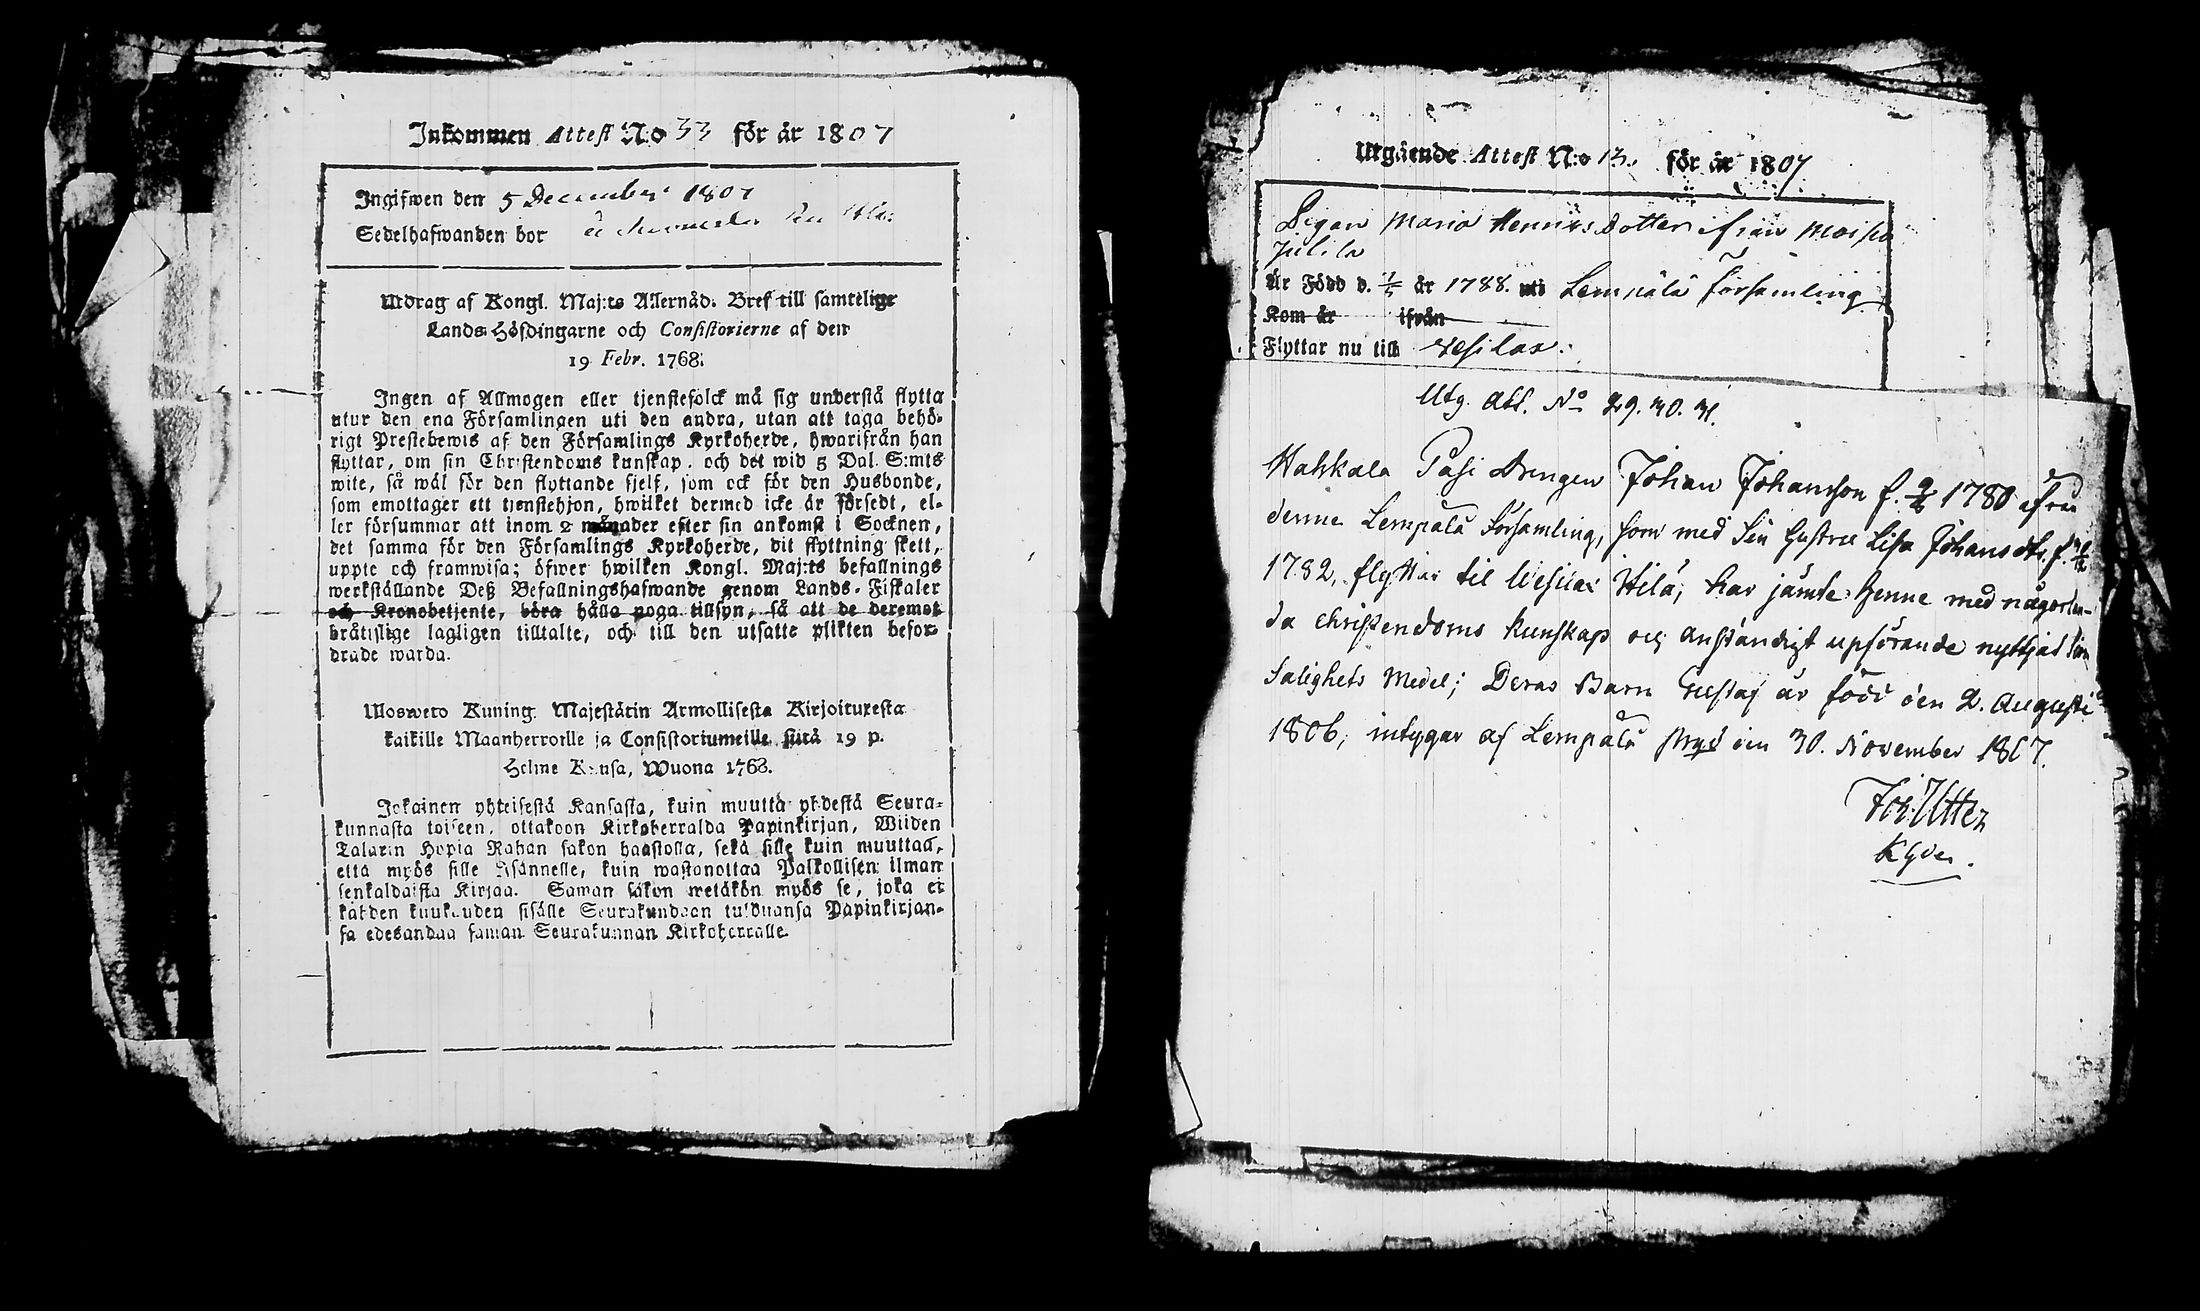 Inkommen Attest N:o 33 för år 1807
Ingifwen den 5 December 1807
Sedelhafwanden bor
Utdrag af Kongl. Maj:ts Allernåd. Bref till samtelige
Lands-Höfdingarne och Consistorierne af den
19 Febr. 1768.
Ingen af Allmogen eller tjenstefolck må sig understå flytta
utur den ena Församlingen uti den andra, utan att taga behö-
rigt Prestebewis af den Församlings Kyrkoherde, hwarifrån han
flyttar, om sin Christendoms kunskap, och det wid 5 Dal. S:mts
wite, så wäl för den flyttande sjelf, som ock för den Husbonde,
som emottager ett tjenstehjon, hwilket dermed icke är försedt, el-
ler försummar att inom 2 månader efter sin ankomst i Socknen,
det samma för den Församlings Kyrkoherde, dit flyttning skett,
uppte och framwisa; öfwer hwilken Kongl. Maj:ts befallnings
werkställande Deß Befallningshafwande genom Lands-Fiskaler
och Kronobetjente, böra hålla noga tillsyn, så att de deremot
bråtislige lagligen tilltalte, och till den utsatte plikten befor-
drade warda.
Uloswetο Kuning. Majestätin Armollisesta Kirjoituxesta
kaikille Maanherroille ja Consistoriumeille siitä 19 p.
Helme Kuusa, Wuona 1768.
Jokainen yhteisestä Kansasta, kuin muutta yhdestä Seura-
kunnasta toiseen, ottakoon Kirkoherralda Papinkirjan, Wiiden
Talarin Hopia Rahan sakon haastolla, sekä sille kuin muuttaa,
että myös sille Isännelle, kuin wastanottaa Palkollisen ilman
senkaldaista Kirjaa. Saman sakon wetäkön myös se, joka ei
kahden kuukauden sisälle Seurakundaan tulduansa Papinkirjan-
sa edesandaa saman Seurakunnan Kirkoherralle.
Utgående Attest N:o 13. för år 1807
Pigan Maria Henricsdotter ifrån Moisio
Julila
Är Född d. 1/5 år 1788. uti Lempälä Församling
Kom år ifrån
Flyttar nu till Vesilax.
Utg. Att. No 29. 30. 31.
Hakkala Pasi Drengen Johan Johansson f. 1780 ifrån
denne Lempälä Församling, som med sin Hustru Lisa Johansdt. f.
1782, flyttar til Wesilax Hilä, har jämte henne med någorlun-
da christendoms kunskap och anständigt upförande nyttjat sina
Salighets Medel; Deras Barn Gustaf är född den 2. Augusti
1806; intygar af Lempälä Prgd den 30. November 1807.
Utter